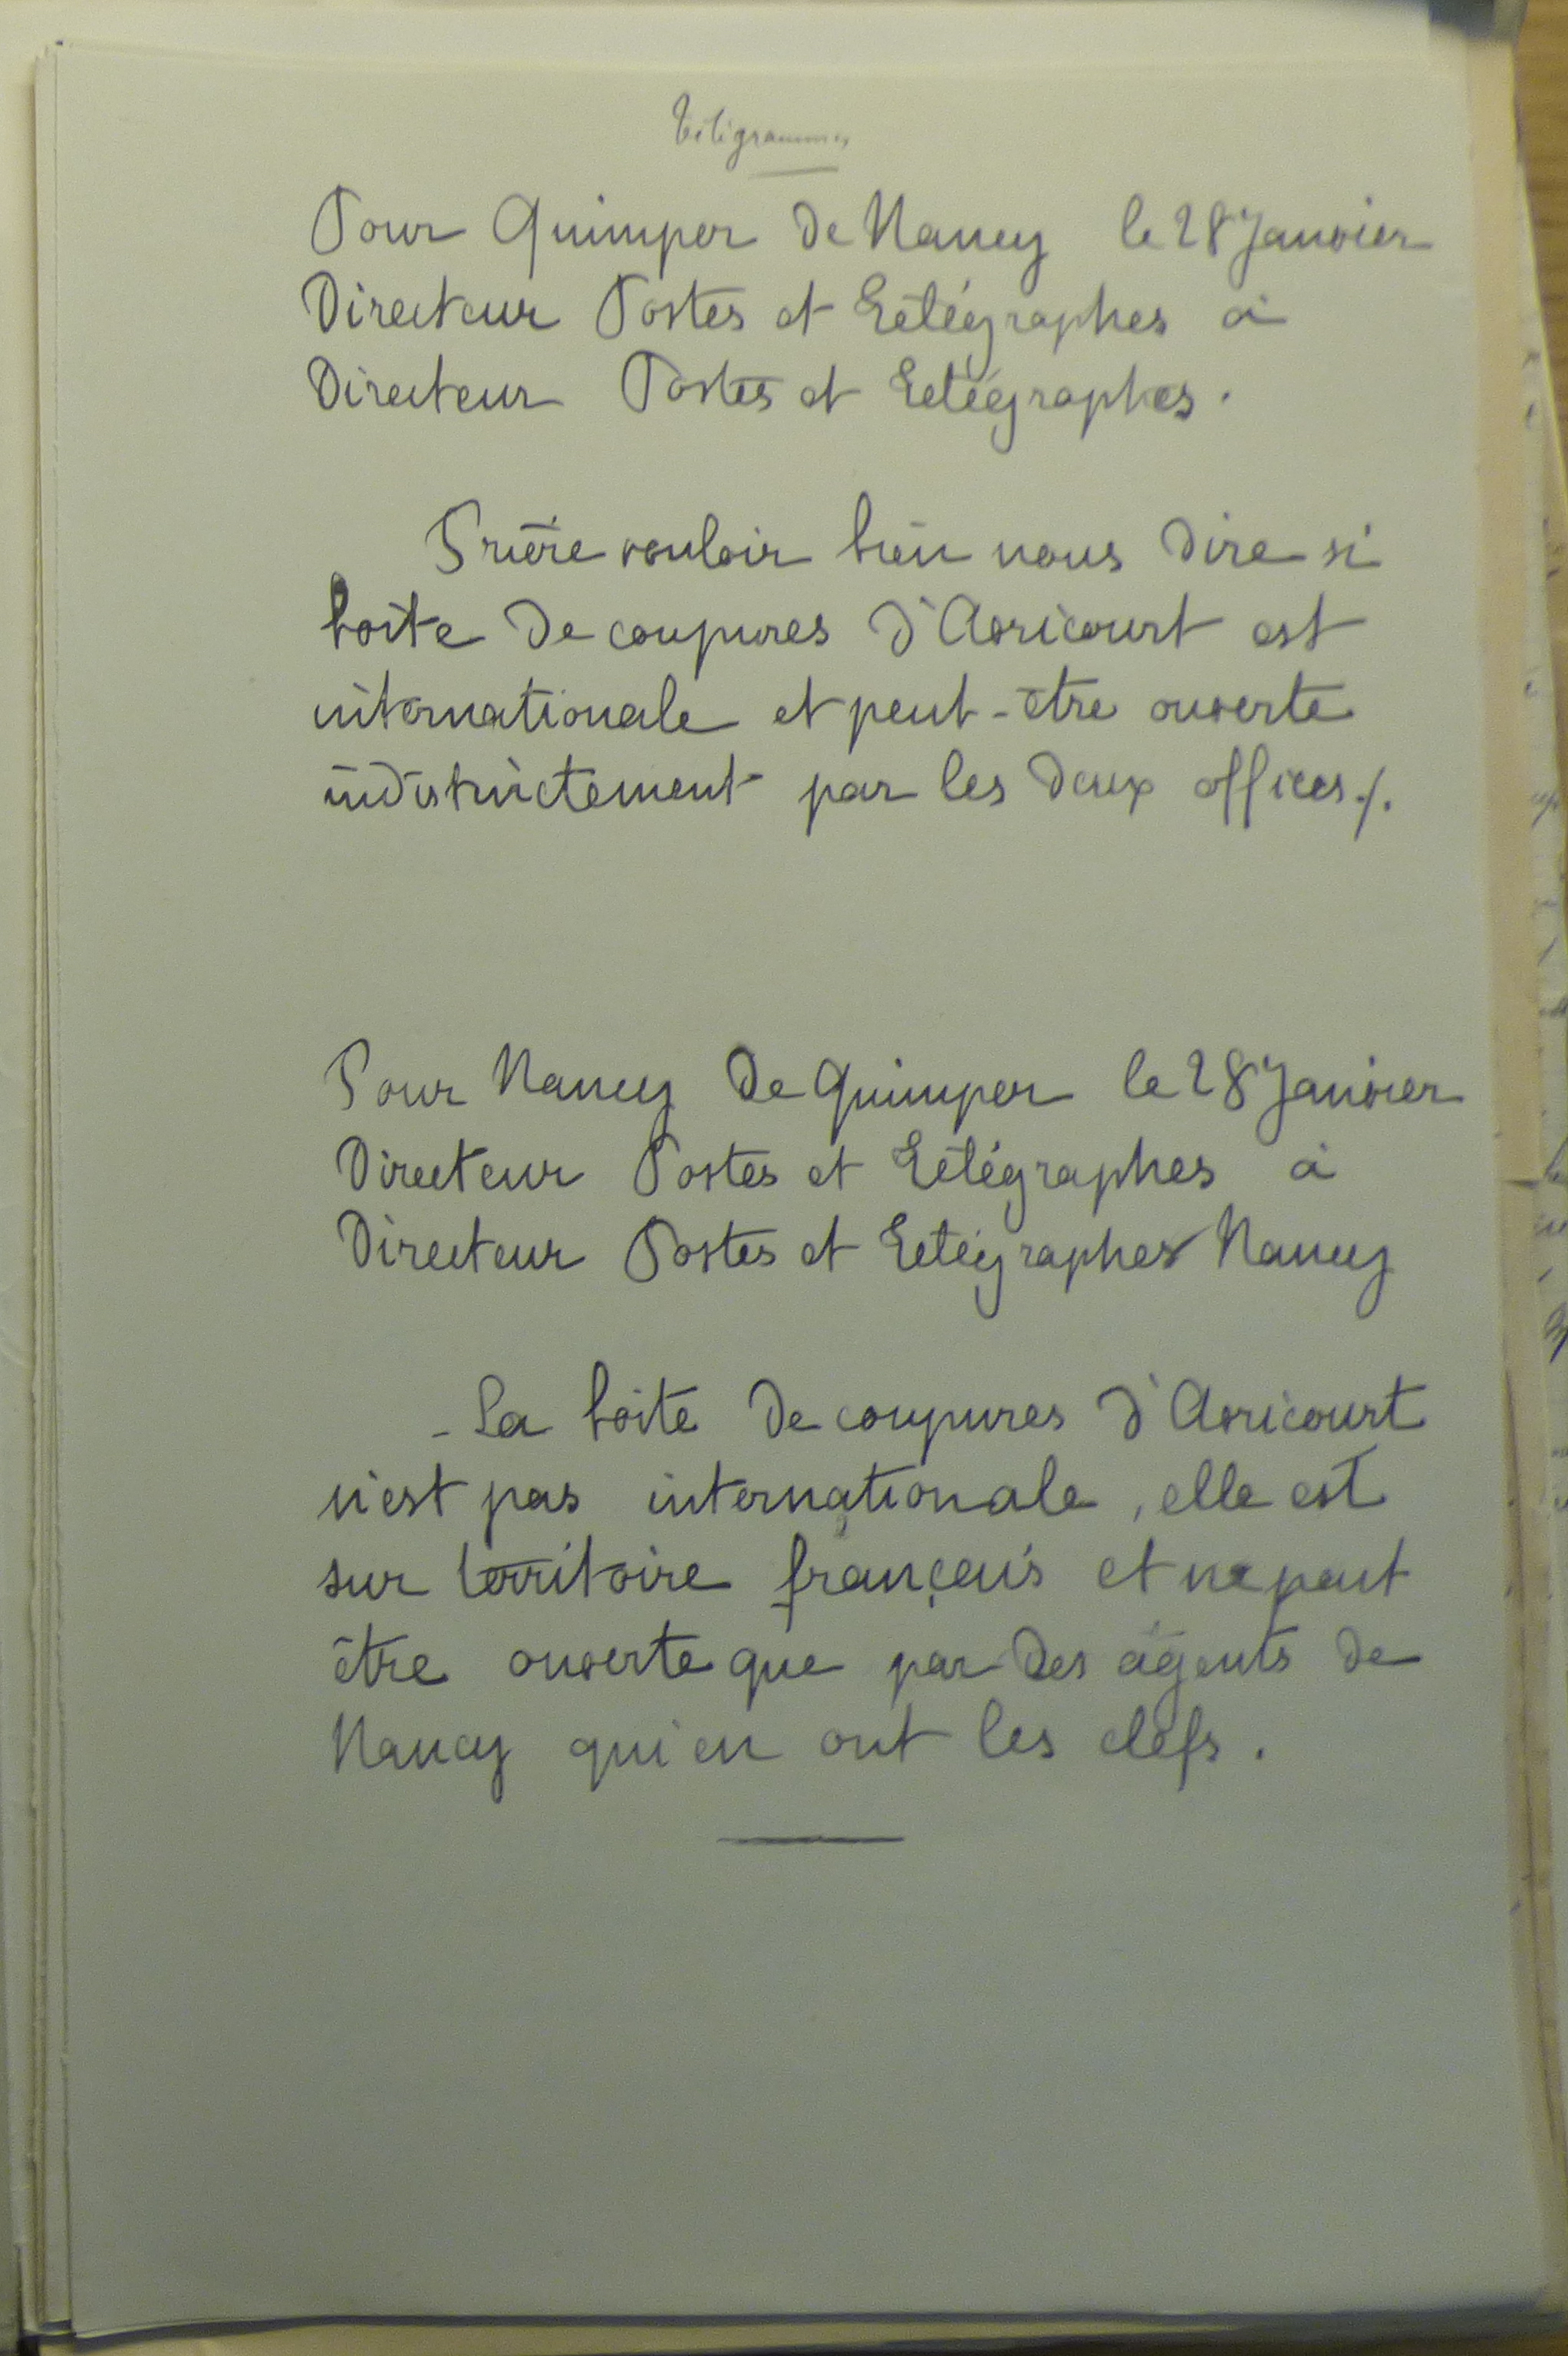 Télégrammes
Pour Quimper de Nancy le 28 Janvier
Directeur Postes et Télégraphes à
Directeur Postes et Télégraphes.
Prière vouloir bien nous dire si
boîte de coupures d'Avricourt est
internationale et peut-être ouverte
indistinctement par les deux offices./.
Pour Nancy de Quimper le 28 Janvier
Directeur Postes et Télégraphes à
Directeur Postes et Télégraphes Nancy
- La boite de coupures d'Avricourt
n'est pas internationale, elle est
sur territoire français et ne peut
être ouverte que par des agents de
Nancy qui en ont les clefs.